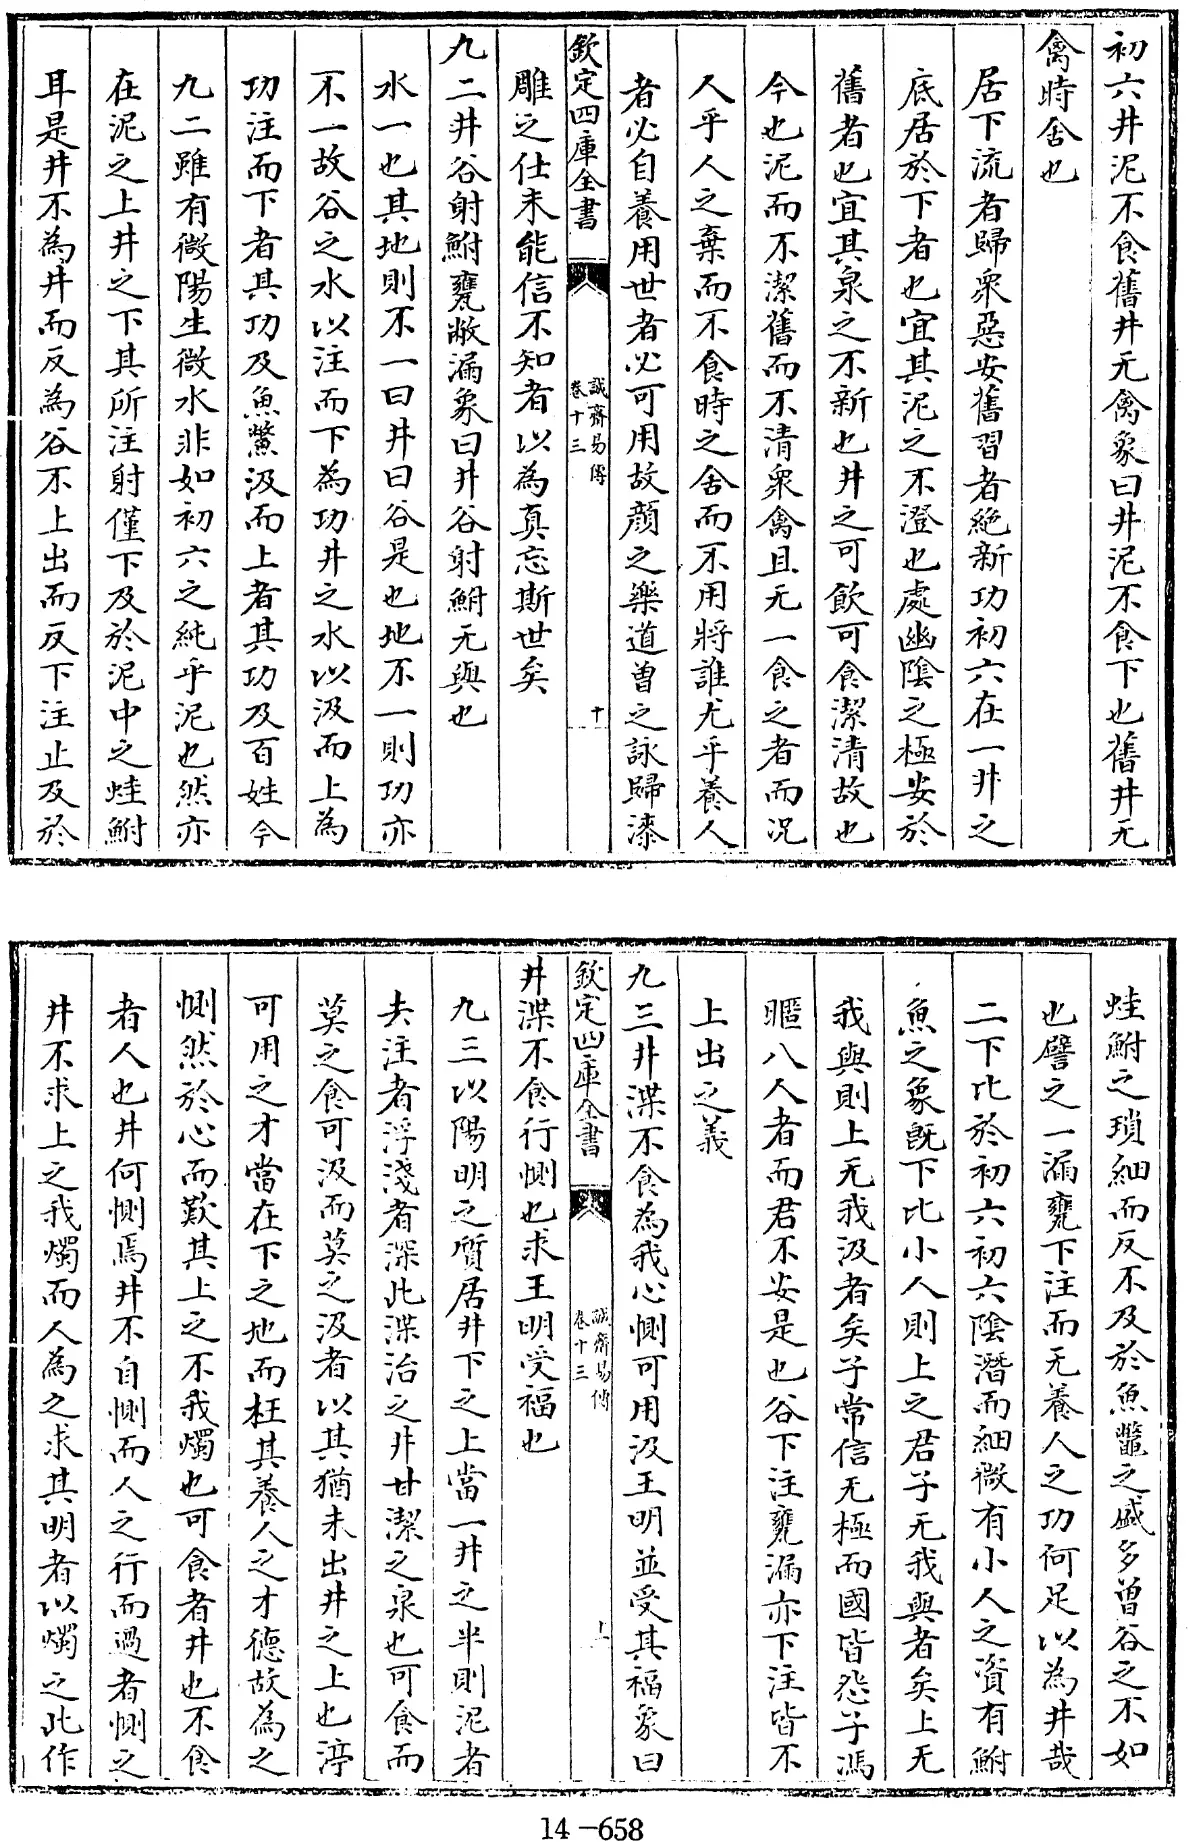 初六井泥不食舊井无禽象曰井泥不食下也舊井无
禽時舍也
居下流者歸衆惡安舊習者絶新功初六在一井之
底居於下者也宜其泥之不澄也處幽陰之極安於
舊者也宜其泉之不新也井之可飲可食潔清故也
今也泥而不潔舊而不清衆禽且无一食之者而况
人乎人之棄而不食時之舍而不用將誰尤乎養人
者必自養用世者必可用故顔之樂道曽之詠歸漆
欽定四庫全書
誠齋易傳
卷十三
十
雕之仕未能信不知者以為真忘斯世矣
九二井谷射鮒甕敝漏象曰井谷射鮒无與也
水一也其地則不一曰井曰谷是也地不一則功亦
不一故谷之水以注而下為功井之水以汲而上為
功注而下者其功及魚鱉汲而上者其功及百姓今
九二雖有微陽生微水非如初六之純乎泥也然亦
在泥之上井之下其所注射僅下及於泥中之蛙鮒
耳是井不為井而反為谷不上出而反下注止及於
蛙鮒之瑣細而反不及於魚鼈之盛多曽谷之不如
也譬之一漏甕下注而无養人之功何足以為井哉
二下比於初六初六陰潛而細微有小人之資有鮒
魚之象既下比小人則上之君子无我與者矣上无
我與則上无我汲者矣子常信无極而國皆怨子馮
暱八人者而君不安是也谷下注甕漏亦下注皆不
上出之義
九三井渫不食為我心惻可用汲王明並受其福象曰
欽定四庫全書
誠齋易傳
卷十三
上
井渫不食行惻也求王明受福也
九三以陽明之質居井下之上當一井之半則泥者
去注者浮淺者深此渫治之井甘潔之泉也可食而
莫之食可汲而莫之汲者以其猶未出井之上也渟
可用之才當在下之地而枉其養人之才德故為之
惻然於心而歎其上之不我燭也可食者井也不食
者人也井何惻焉井不自惻而人之行而過者惻之
井不求上之我燭而人為之求其明者以燭之此作
14-658